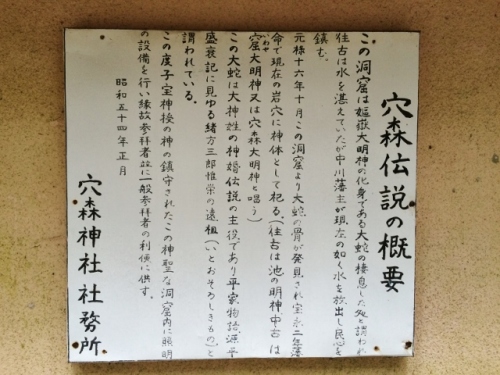 穴森伝説の概要
この洞窟は嫗嶽大明神の化身である大蛇の棲息した処と謂われ
往古は水を湛えていたが中川藩主が現在の如く水を放出し民心を
鎮む。
元禄十六年十月この洞窟より大蛇の骨が発見され宝永二年藩
命で現在の岩穴に神体として祀る。(往古は池の明神、中古は
窟大明神又は穴森大明神と唱う)
この大蛇は大神姓の神婚伝説の主役であり平家物語、源平
盛衰記に見ゆる緒方三郎惟栄の遠祖(いとおそろしきもの)と
謂われている。
この度子宝神授の神の鎮守されたこの神聖な洞窟内に照明
の設備を行い縁故参拝者並に一般参拝者の利便に供す。
昭和五十四年正月
穴森神社社務所